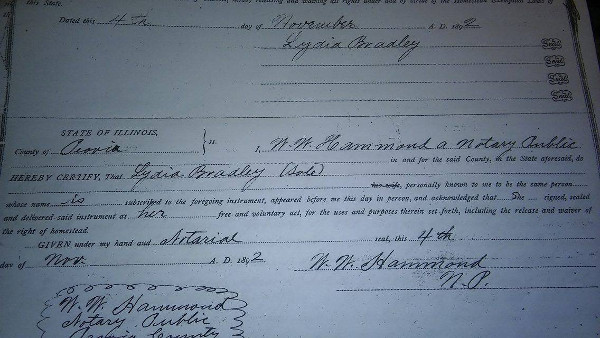 this State.
Dated this 4th day of November A. D. 1892
Lydia Bradley Seal
Seal
Seal
Seal
STATE OF ILLINOIS,
County of Peoria } ss. I, W. W. Hammond a Notary Public
in and for the said County, in the State aforesaid, do
HEREBY CERTIFY, That Lydia Bradley (Sole)
his wife, personally known to me to be the same person
whose name is subscribed to the foregoing instrument, appeared before me this day in person, and acknowledged that She signed, sealed
and delivered said instrument as her free and voluntary act, for the uses and purposes therein set forth, including the release and waiver of
the right of homestead.
GIVEN under my hand and Notarial seal, this 4th
day of Nov. A. D. 1892 W. W. Hammond
N. P.
W. W. Hammond
Notary Public
Peoria County